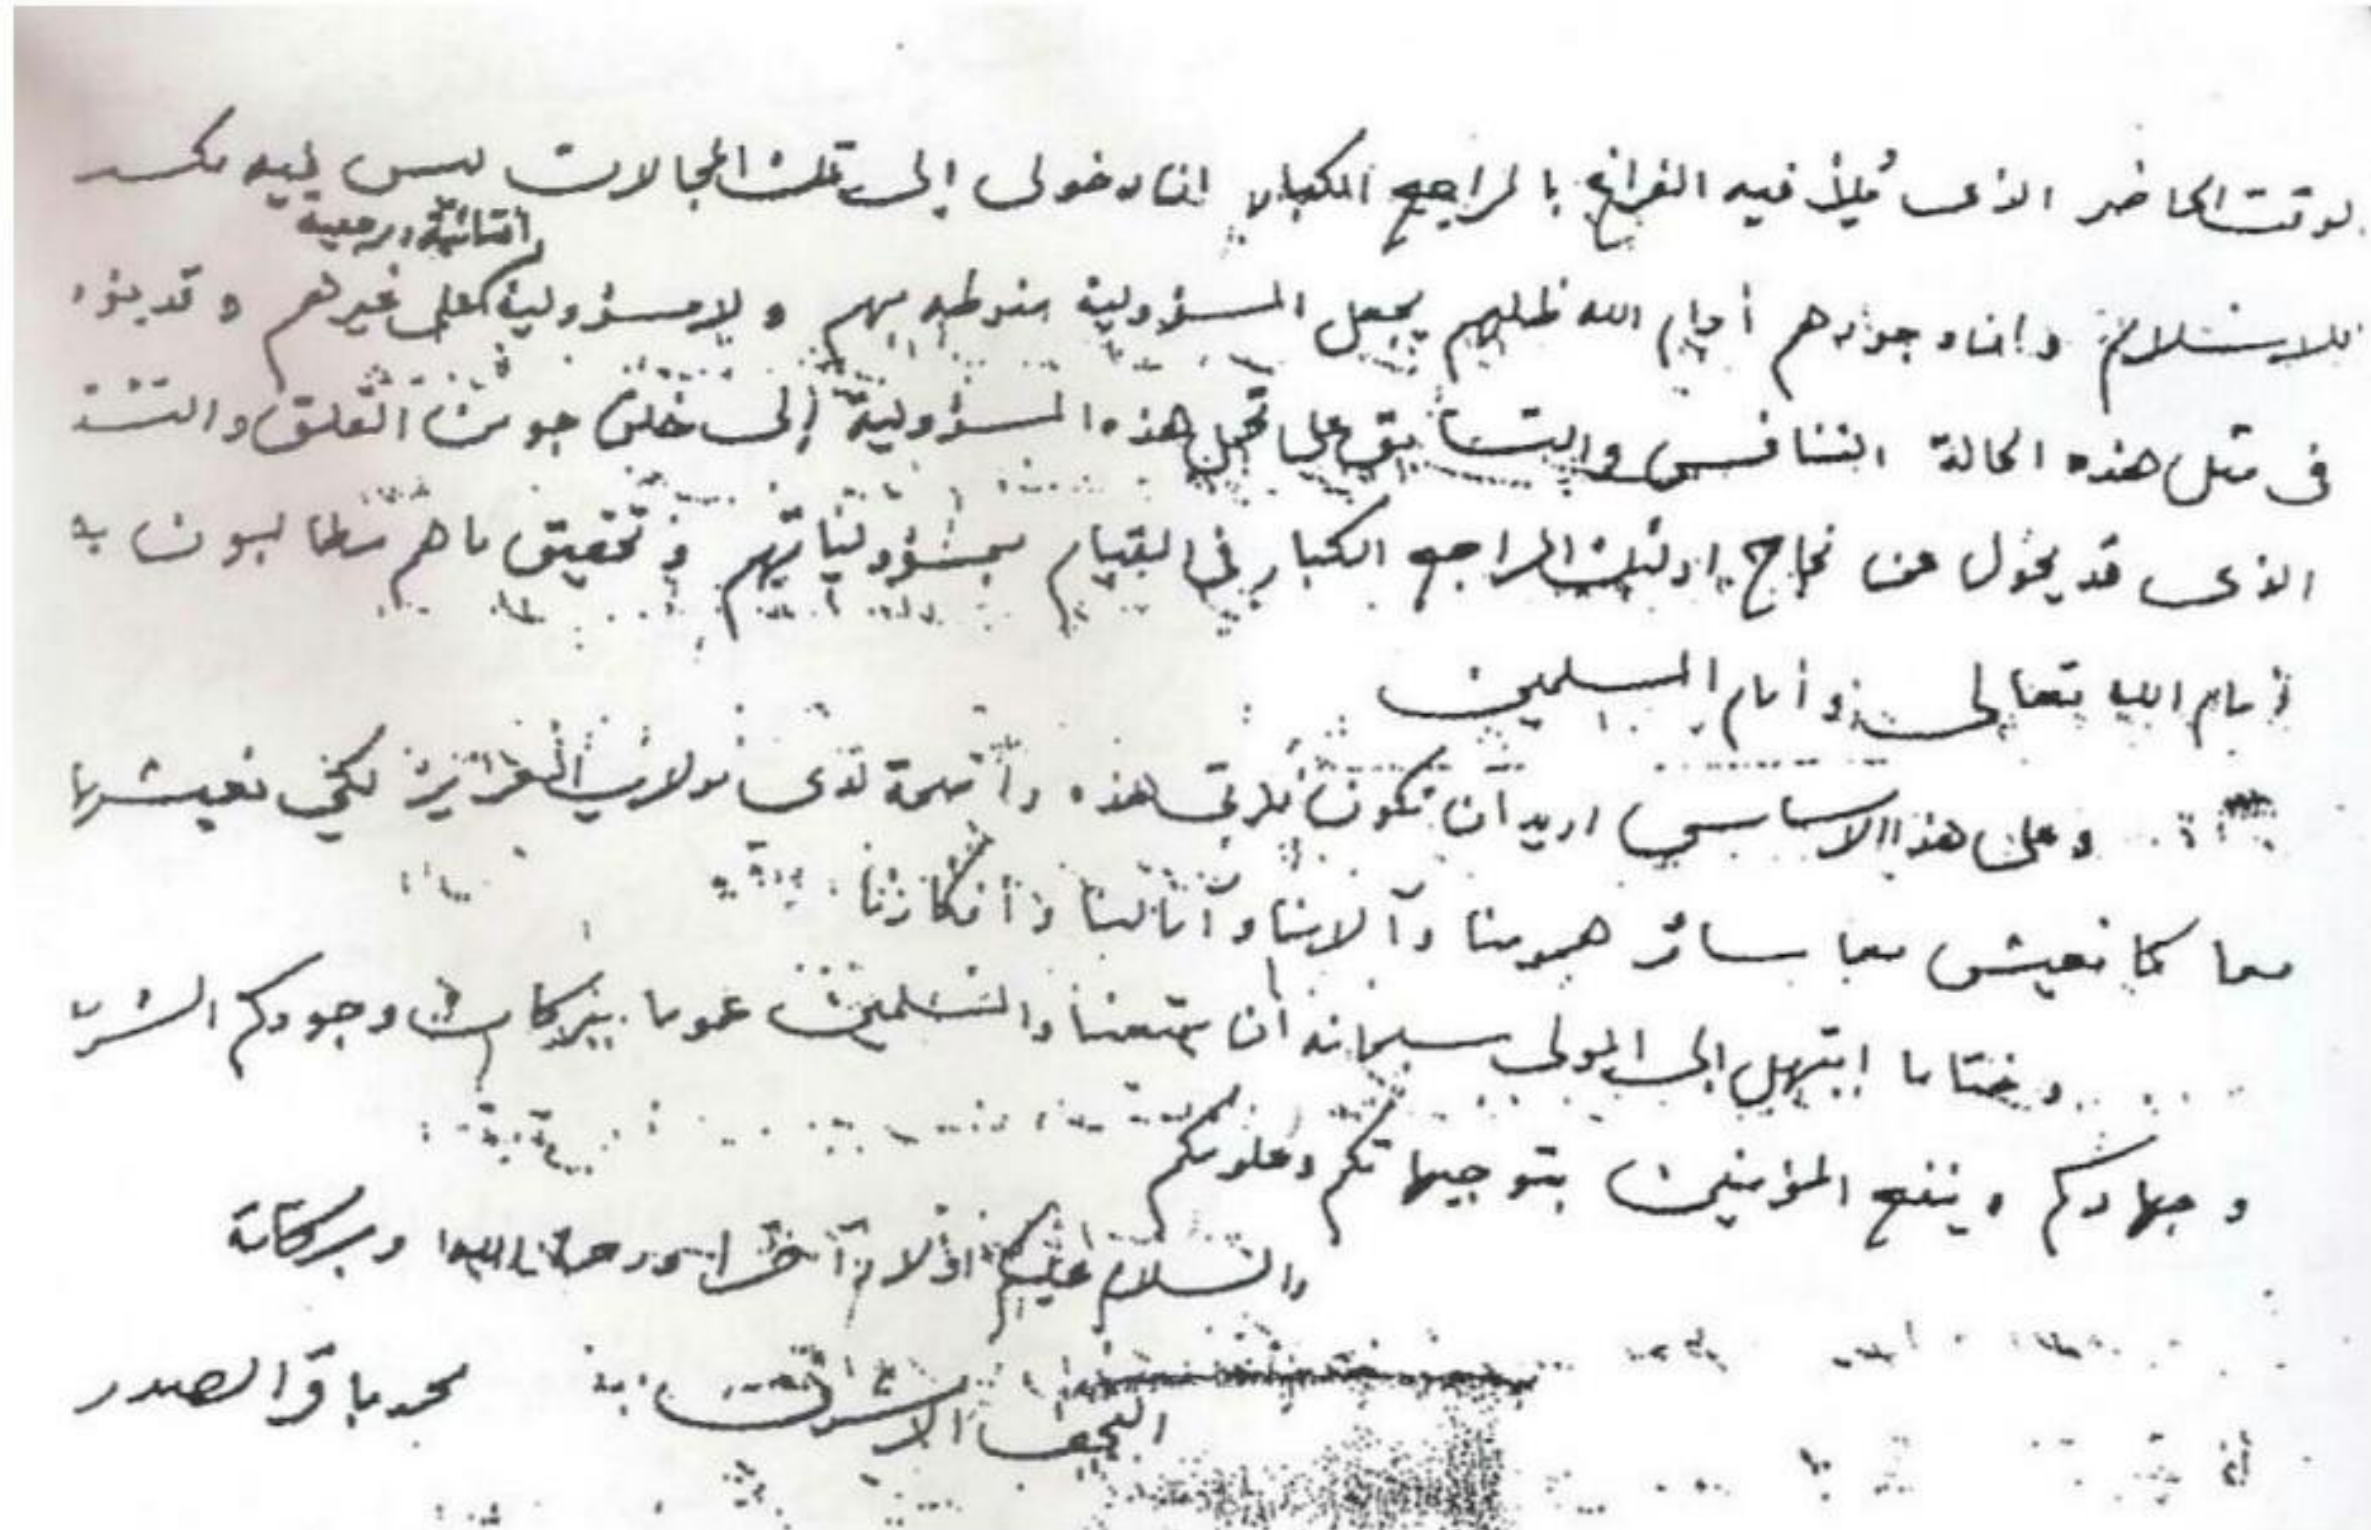 لوقت الحاضر الذى يُملأ فيه الفراغ بالمراجع الكبار ان دخولى إلى تلك المجالات ليس فيه مكسد
للاسلام وان وجودهم أدام الله ظلهم يجعل المسؤولية منوطة بهم ولا مسؤولية على غيرهم وقد يؤد
فى مثل هذه الحالة التنافس والتسابق على تحمل هذه المسؤولية إلى خلق جو من القلق والتشتت
الذى قد يحول من نجاح اولئك المراجع الكبار فى القيام بمسؤولياتهم وتحقيق ما هم مطالبون به
أمام الله تعالى وأمام المسلمين
وعلى هذا الاساس اريد أن تكون هذه واضحة لدى مولاى العزيز لكي نعيشها
معا كما نعيش معا سائر همومنا وآلامنا وآمالنا وأفكارنا
وختاما ابتهل الى المولى سبحانه أن يمتعنا والمسلمين عموما ببركات وجودكم الشريف
وجهادكم وينفع المؤمنين بتوجيهاتكم وعلومكم
والسلام عليكم أولا وآخرا ورحمة الله وبركاته
النجف الاشرف محمد باقر الصدر